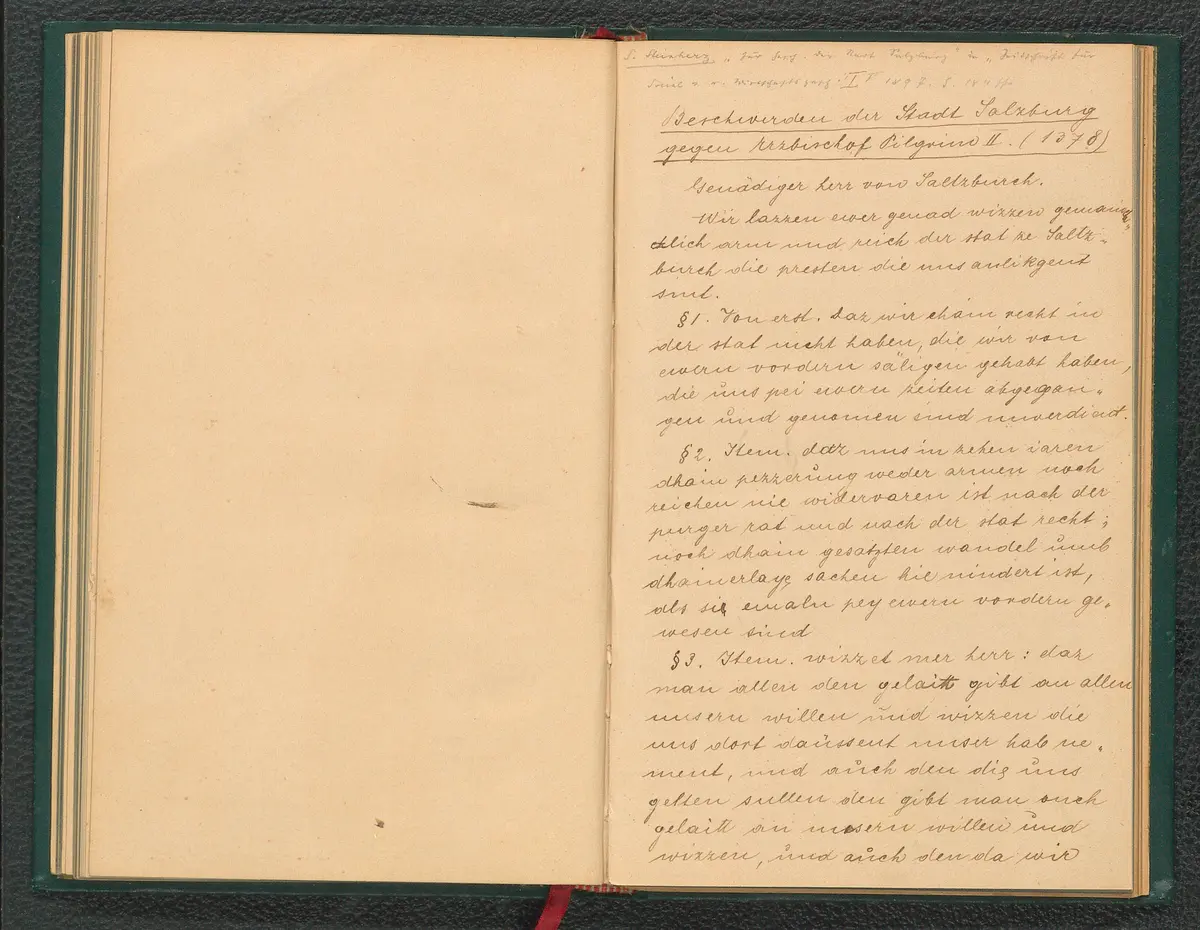 S. Steinherz „Zur Gesch. der Stadt Salzburg" in „Zeitschrift für
Social u. Wirtschaftsgesch. 1897. S.
Beschwerden der Stadt Salzburg
gegen Erzbischof Pilgrim II. (1378)
Genädiger herr von Saltzburch.
Wir lazzen ewer genad wizzen gemain„
chlich arm und reich der stat ze Saltz„
burch die presten die uns anlikgent
sint.
§1. Von erst. daz wir chain recht in
der stat nicht haben, die wir von
ewern vordern säligen gehabt haben,
die ŭns pei ewern zeiten abgegan„
gen ŭnd genomen sind unverdient.
§2. Item. daz uns in zehen iaren
dhain pezzerŭng weder armen noch
reichen nie widervaren ist nach der
purger rat und nach der stat recht;
noch dhain gesatzten wandel ŭmb
dhainerlaye sachen hie nindert ist,
als sie emaln pey ewern vordern ge„
wesen sind
§3. Item. wizzet mer herr: daz
man allen den gelaitt gibt an allen
unsern willen und wizzen die
uns dort daŭssent unser hab ne„
ment, und aŭch den die ŭns
gelten sullen den gibt man ouch
gelaitt an unsern willen ŭnd
wizzen, ŭnd aŭch den da wir